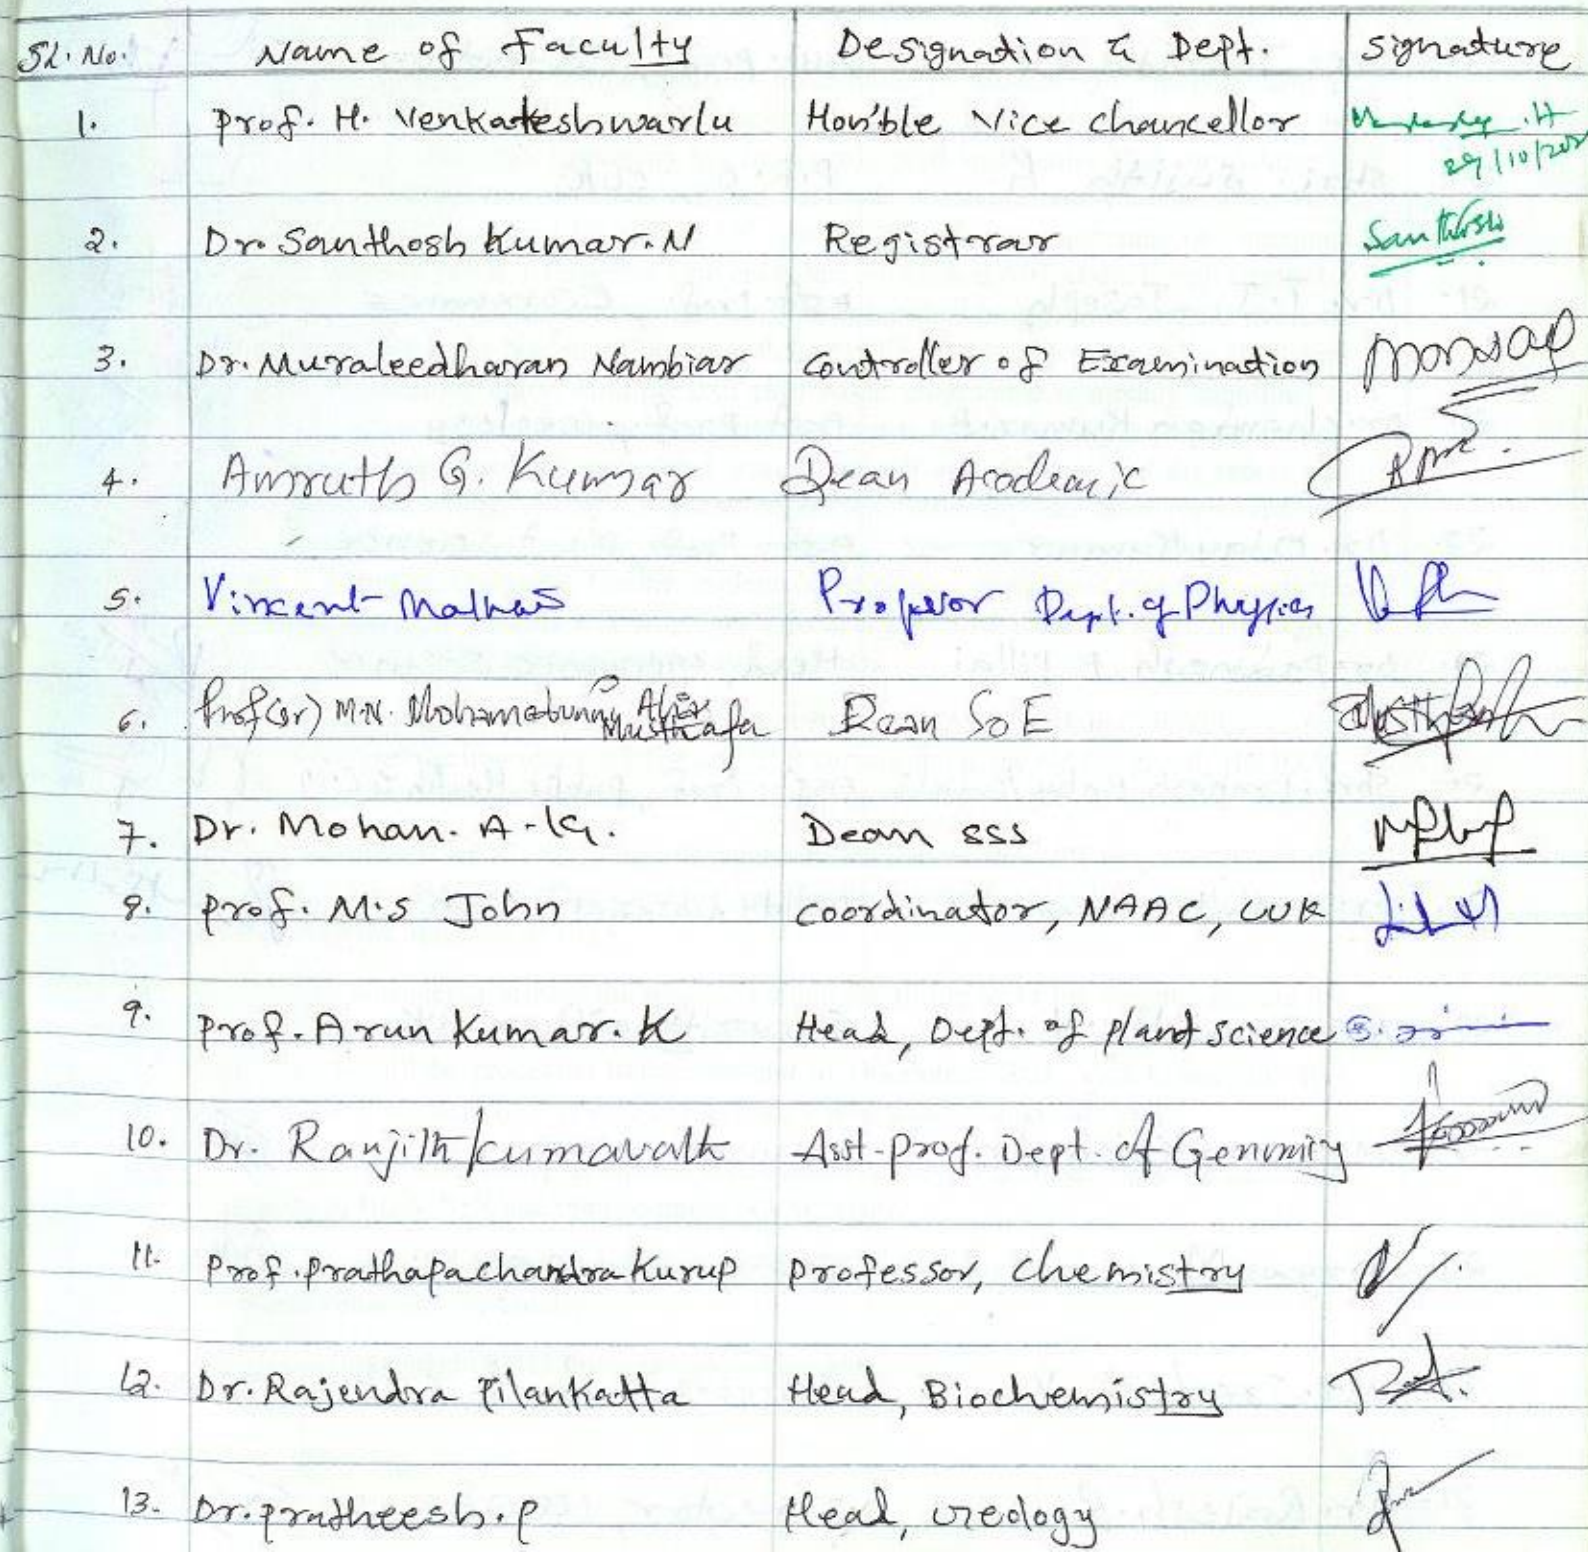 Sl. No. Name of Faculty Designation & Dept. Signature
1. Prof. H. Venkateshwarlu Hon'ble Vice Chancellor
29/10/202
2. Dr. Santhosh Kumar. N Registrar Santhosh
3. Dr. Muraleedharan Nambiar Controller of Examination
4. Amruth G. Kumar Dean Academic
5. Vincent Mathew Professor Dept. of Physics
6. Prof (Dr) M.N. Mohamedunni Alias Musthafa Dean SoE
7. Dr. Mohan. A.K. Dean SSS
8. Prof. M.S John Coordinator, NAAC, CUK
9. Prof. Arun Kumar. K Head, Dept. of Plant Science
10. Dr. Ranjith Kumavath Asst. Prof. Dept. of Genomics
11. Prof. Prathapachandra Kurup Professor, Chemistry
12. Dr. Rajendra Pilankatta Head, Biochemistry
13. Dr. Pratheesh. P Head, Geology